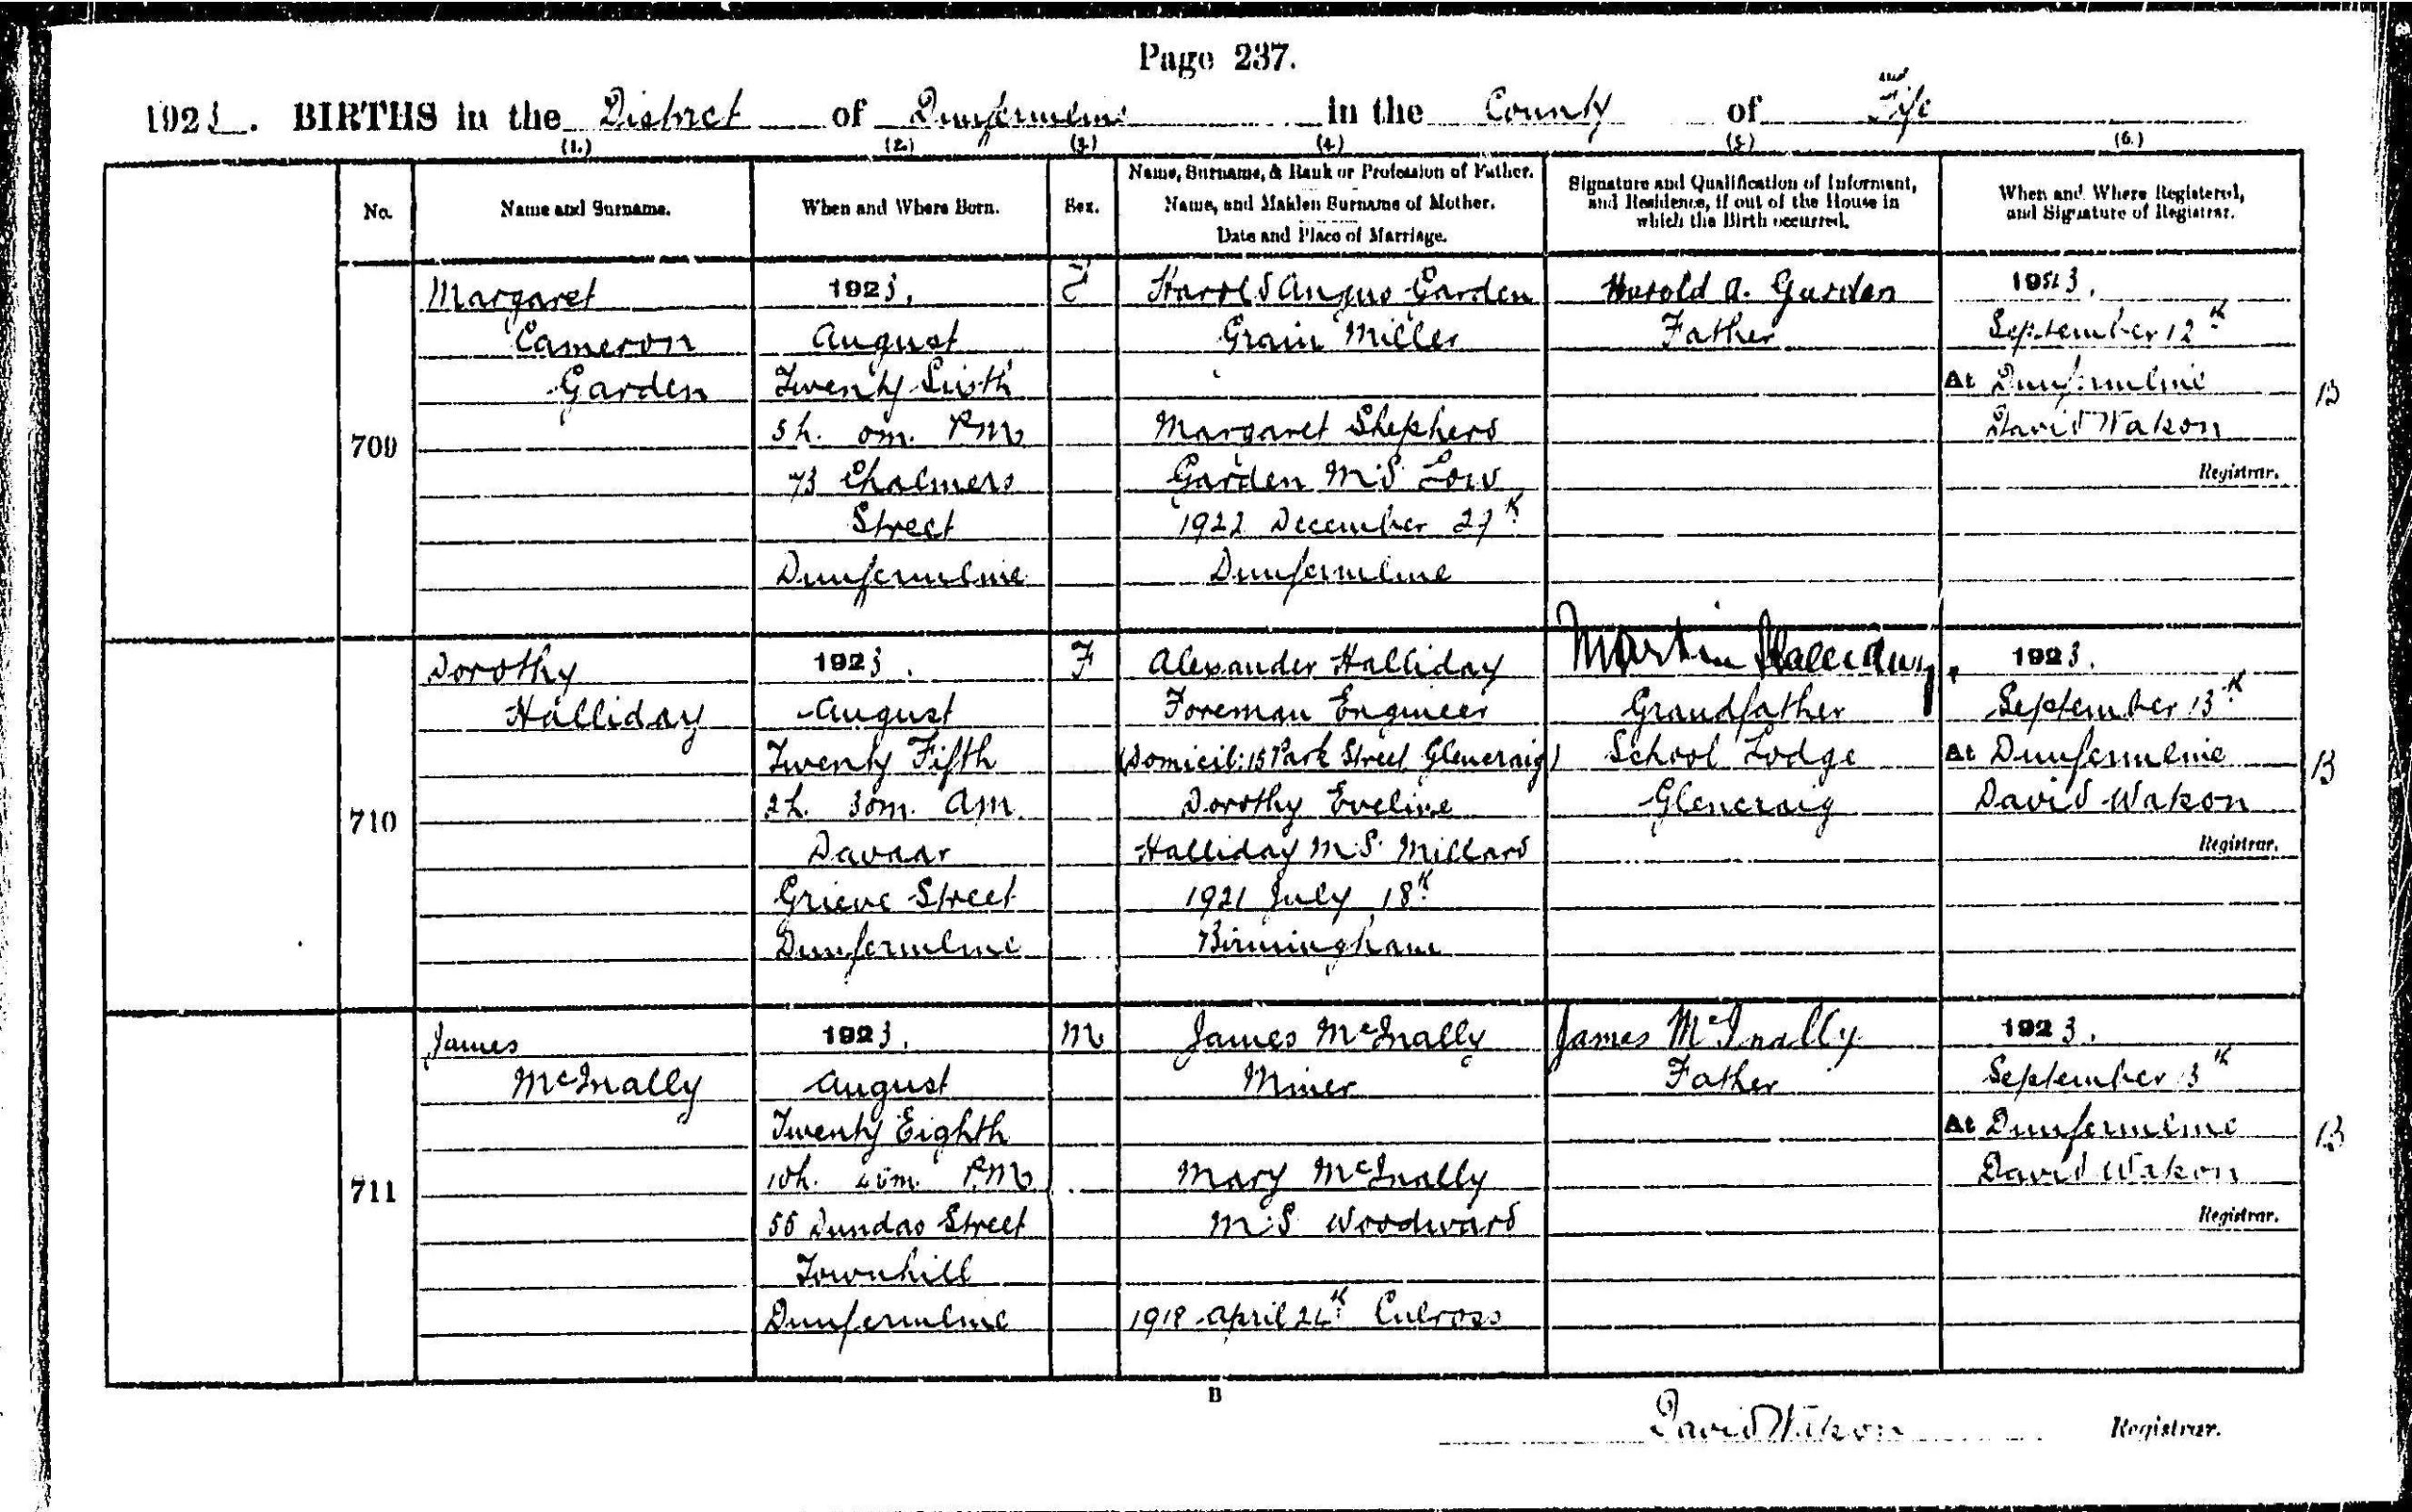 Page 237.
1923. BIRTHS in the District of Dunfermline in the County of Fife
(1.) (2.) (3.) (4.) (5.) (6.)
No.
Name and Surname.
When and Where Born.
Sex.
Name, Surname, & Rank or Profession of Father.
Name, and Maiden Surname of Mother.
Date and Place of Marriage.
Signature and Qualification of Informant,
and Residence, if out of the House in
which the Birth occurred.
When and Where Registered,
and Signature of Registrar.
709
Margaret
Cameron
Garden
1923.
August
Twenty Sixth
5h. 0m. PM
73 Chalmers
Street
Dunfermline
F
Harold Angus Garden
Grain Miller
Margaret Shepherd
Garden M.S. Low
1922 December 27th
Dunfermline
Harold A. Garden
Father
1923.
September 12th
At Dunfermline
David Watson
Registrar.
B
710
Dorothy
Halliday
1923.
August
Twenty Fifth
2h. 30m. AM
Davaar
Grieve Street
Dunfermline
F
Alexander Halliday
Foreman Engineer
(Domicil: 15 Park Street Glencraig)
Dorothy Eveline
Halliday M.S. Millard
1921 July 18th
Birmingham
Martin Halliday.
Grandfather
School Lodge
Glencraig
1923.
September 13th
At Dunfermline
David Watson
Registrar.
B
711
James
McInally
1923.
August
Twenty Eighth
10h. 45m. PM
55 Dundas Street
Townhill
Dunfermline
M
James McInally
Miner
Mary McInally
M.S. Woodward
1918 April 24th Culross
James McInally
Father
1923.
September 13th
At Dunfermline
David Watson
Registrar.
B
B
David Watson Registrar.